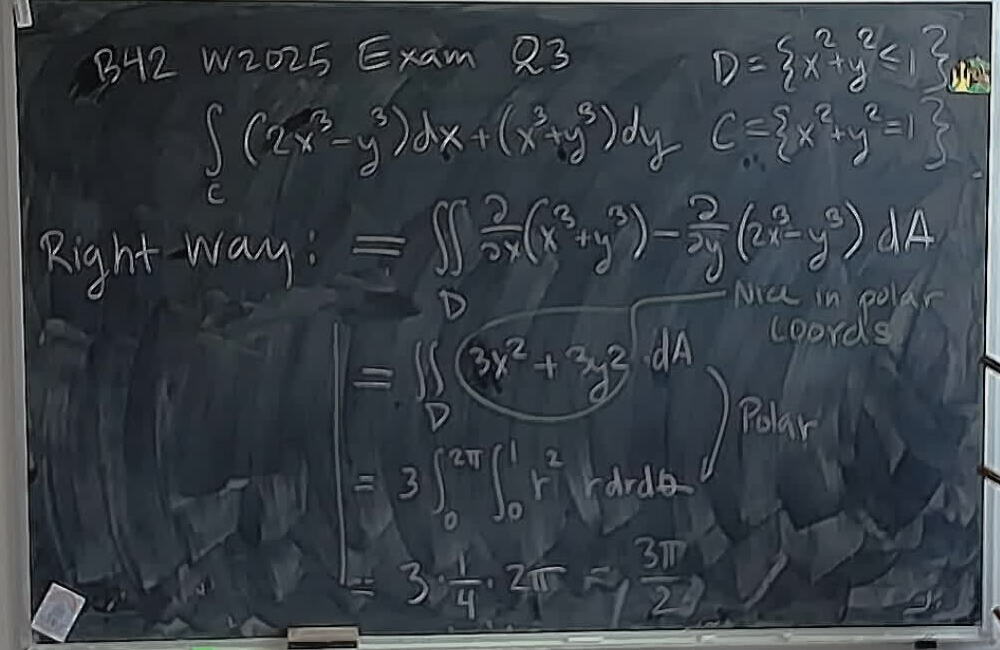 B42 W2025 Exam Q3
D = {x² + y² ≤ 1}
∫_C (2x³ - y³)dx + (x³ + y³)dy
C = {x² + y² = 1}
Right Way: = ∬_D ∂/∂x (x³ + y³) - ∂/∂y (2x³ - y³) dA
Nice in polar
coords
= ∬_D 3x² + 3y² dA
Polar
= 3 ∫₀^{2π} ∫₀¹ r² r dr dθ
= 3 · 1/4 · 2π = 3π/2